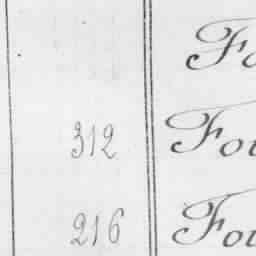 Fo
312 Fou
216 Fou